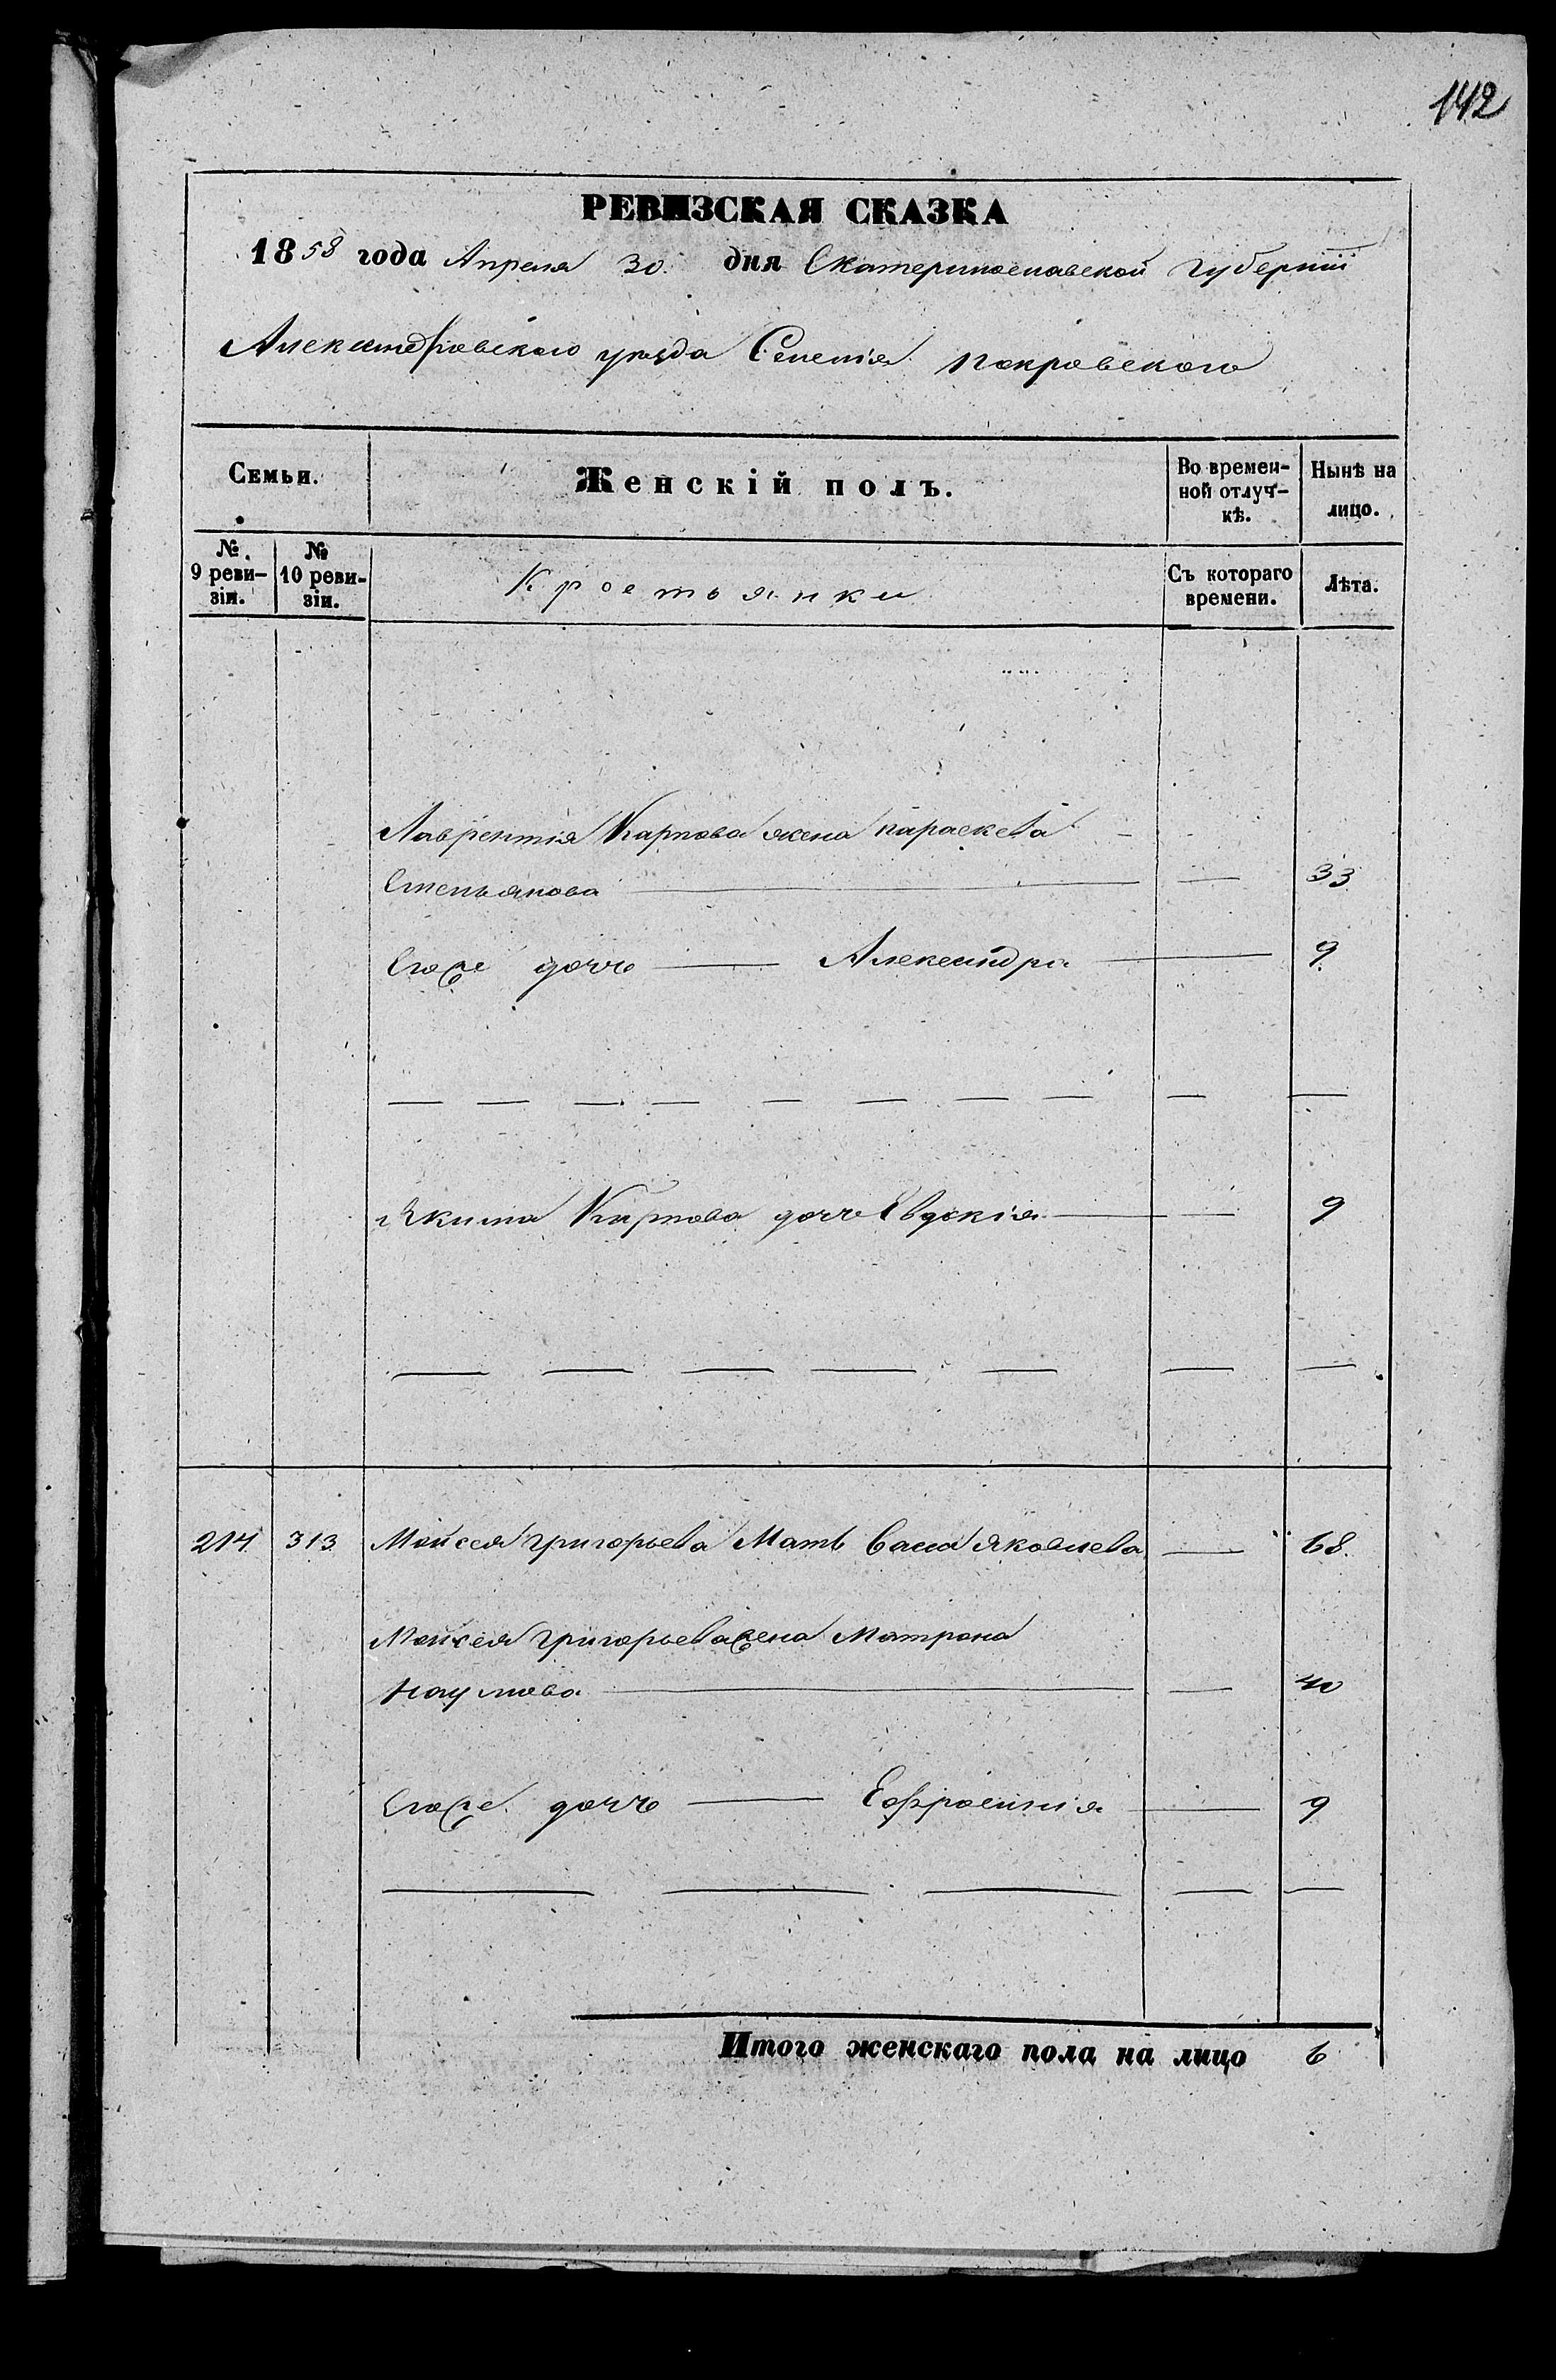 142
РЕВИЗСКАЯ СКАЗКА
1858 года Апреля 30. дня Екатеринославской губерніи
Александровскаго уезда Селенія Покровскаго
Семьи. Женскій полъ. Во времен- Нынѣ на
ной отлуч- лицо.
кѣ.
№ № Крестьянки Съ котораго Лѣта.
9 реви- 10 реви- времени.
зіи. зіи.
Лаврентія Карпова жена Параскева
Степанова — — 33
Егоже дочь — Александра — 9
— — — — — — — — — —
Якима Карпова дочь Евдокія — — 9
— — — — — — —
214 313 Мойсея Григорьева Мать Васса Яковлева — 68.
Мойсея Григорьева жена Матрона
Наумова — — 40
Егоже дочь — Ефросинія — 9
— — — — —
Итого женскаго пола на лицо 6